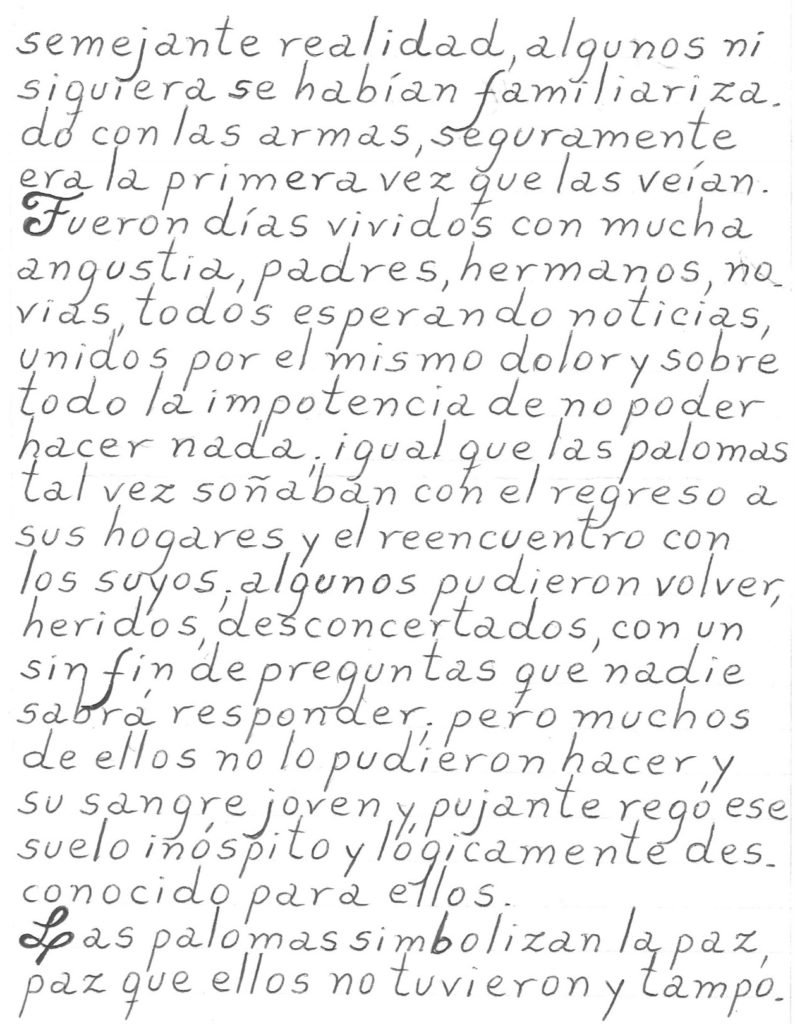 semejante realidad, algunos ni
siquiera se habían familiariza-
do con las armas, seguramente
era la primera vez que las veían.
Fueron días vividos con mucha
angustia, padres, hermanos, no-
vias, todos esperando noticias,
unidos por el mismo dolor y sobre
todo la impotencia de no poder
hacer nada; igual que las palomas
tal vez soñaban con el regreso a
sus hogares y el reencuentro con
los suyos; algunos pudieron volver,
heridos, desconcertados, con un
sin fin de preguntas que nadie
sabrá responder; pero muchos
de ellos no lo pudieron hacer y
su sangre joven y pujante regó ese
suelo inóspito y lógicamente des-
conocido para ellos.
Las palomas simbolizan la paz,
paz que ellos no tuvieron y tampo-